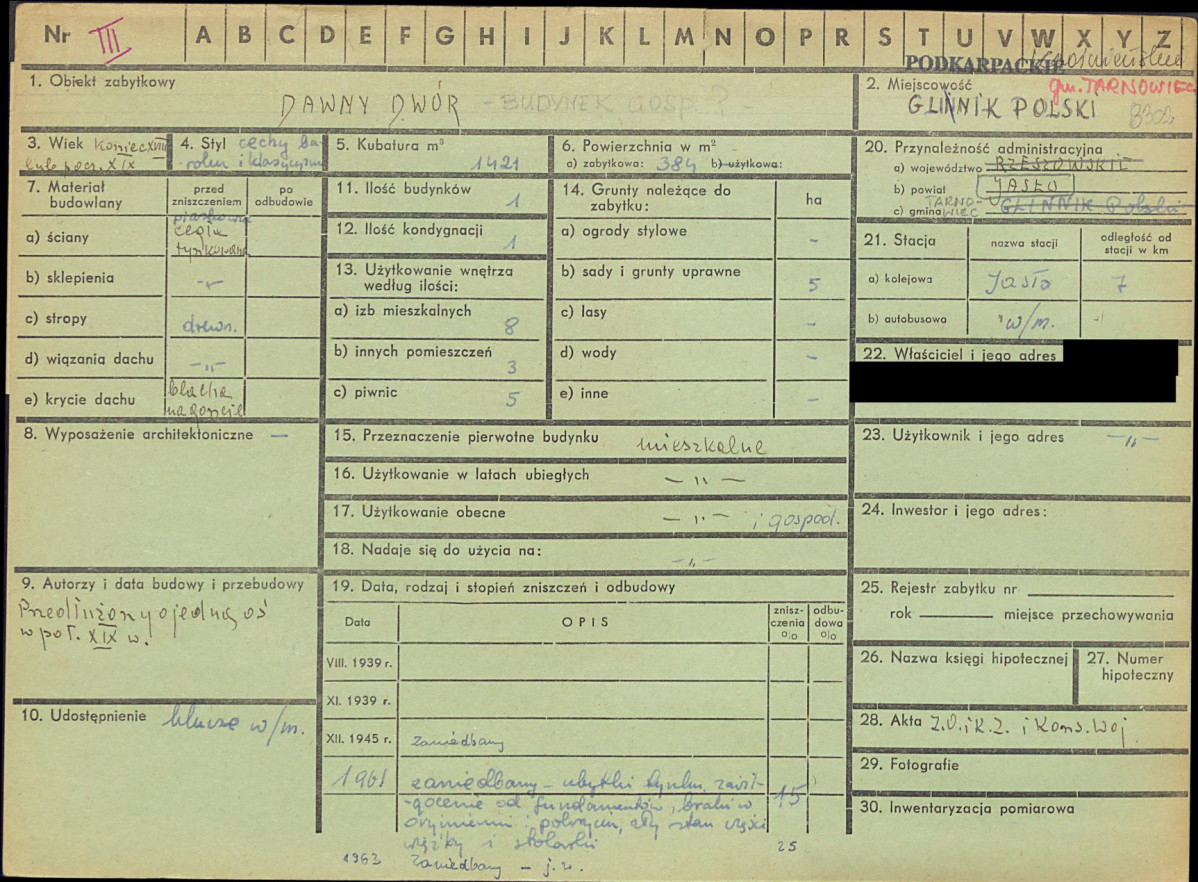 Nr III A B C D E F G H I J K L M N O P R S T U V W X Y Z
PODKARPACKIE
1. Obiekt zabytkowy
DAWNY DWÓR - BUDYNEK GOSP. ?
2. Miejscowość gm. TARNOWIEC
GLINNIK POLSKI
3. Wiek koniec XVIII
lub pocz. XIX
4. Styl cechy ba-
roku i klasycyzmu
5. Kubatura m³
1421
6. Powierzchnia w m²
a) zabytkowa: 384 b) użytkowa:
7. Materiał budowlany
przed zniszczeniem
po odbudowie
a) ściany
piaskowiec
cegła
tynkowane
b) sklepienia -"-
c) stropy drewn.
d) wiązania dachu -"-
e) krycie dachu blacha
na goncie
8. Wyposażenie architektoniczne —
9. Autorzy i data budowy i przebudowy
Przedłużony o jedną oś
w poł. XIX w.
10. Udostępnienie klucze w/m.
11. Ilość budynków
1
12. Ilość kondygnacji
1
13. Użytkowanie wnętrza
według ilości:
a) izb mieszkalnych
8
b) innych pomieszczeń
3
c) piwnic
5
14. Grunty należące do
zabytku:
ha
a) ogrody stylowe -
b) sady i grunty uprawne 5
c) lasy -
d) wody -
e) inne -
15. Przeznaczenie pierwotne budynku mieszkalne
16. Użytkowanie w latach ubiegłych - " -
17. Użytkowanie obecne - " - i gospod.
18. Nadaje się do użycia na: - " -
19. Data, rodzaj i stopień zniszczeń i odbudowy
Data
OPIS
znisz-
czenia
%
odbu-
dowa
%
VIII. 1939 r.
XI. 1939 r.
XII. 1945 r. Zaniedbany
1961 zaniedbany - ubytki tynku, zawil-
-gocenie od fundamentów, braki w
orynnieniu i pokryciu, zły stan części
więźby i stolarki
15
1963 Zaniedbany - j.w. 25
20. Przynależność administracyjna
a) województwo RZESZOWSKIE
b) powiat JASŁO
c) gmina TARNO-
WIEC GLINNIK Polski
21. Stacja
nazwa stacji
odległość od
stacji w km
a) kolejowa Jasło 7
b) autobusowa w/m. -
22. Właściciel i jego adres
23. Użytkownik i jego adres - " -
24. Inwestor i jego adres:
25. Rejestr zabytku nr
rok miejsce przechowywania
26. Nazwa księgi hipotecznej
27. Numer
hipoteczny
28. Akta Z.O.i K.Z. i Kons. Woj.
29. Fotografie
30. Inwentaryzacja pomiarowa